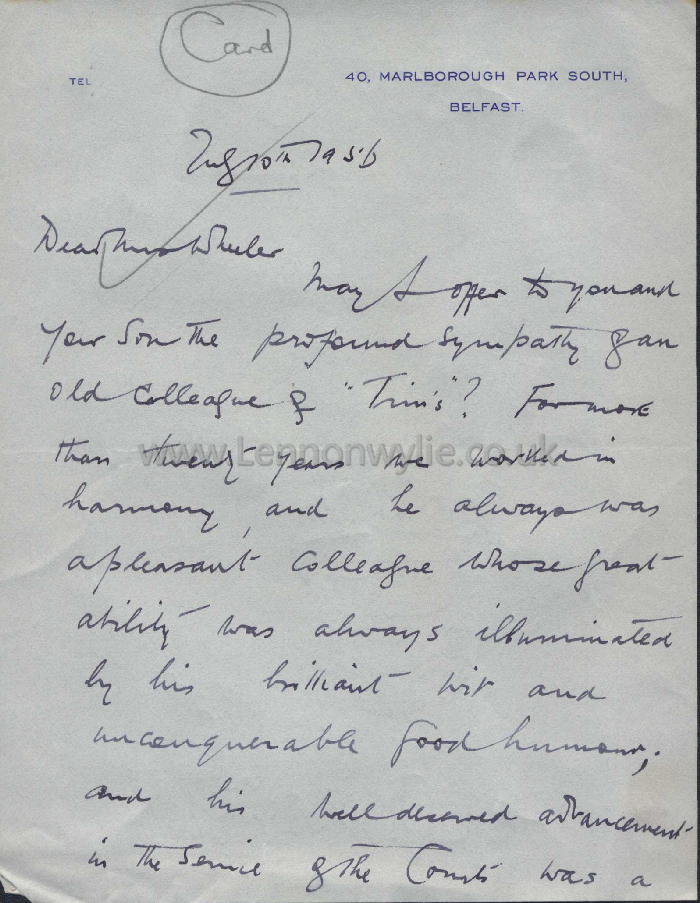 Card
TEL
40, MARLBOROUGH PARK SOUTH,
BELFAST.
July 10th 1956
Dear Mrs Wheeler
May I offer to you and
your Son the profound sympathy of an
old Colleague of "Tim's"? For more
than twenty years we worked in
www.Lennonwylie.co.uk
harmony, and he always was
a pleasant Colleague whose great
ability was always illuminated
by his brilliant wit and
unconquerable good humour;
and his well deserved advancement
in the Service of the Courts was a